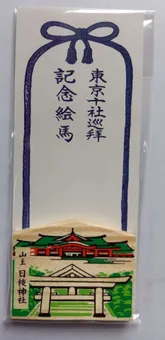 東京十社巡拜
記念絵馬
山王 日枝神社